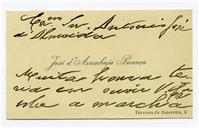 Exmo Snr. Antonio José
d'Almeida
José d'Azambuja Proença
Muita honra te
ria em ouvir V. Exa
a marcha
Travessa da Amoreira, 8